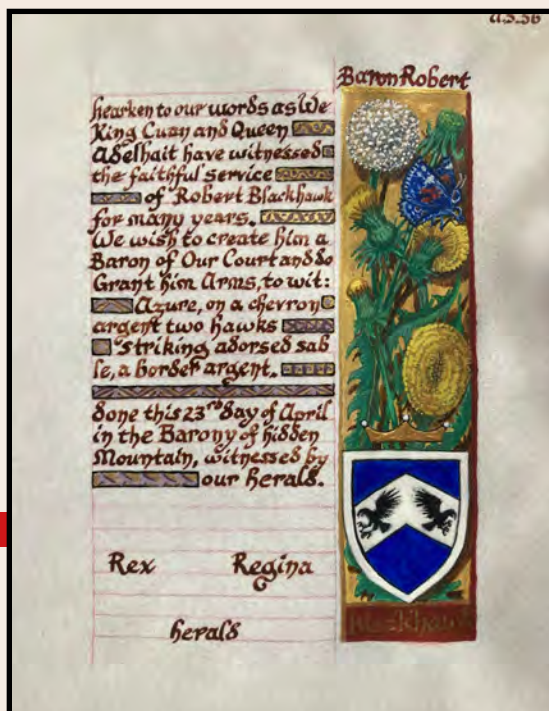 A.S.56
Baron Robert
hearken to our words as We
King Cuan and Queen
Adelhait have witnessed
the faithful service
of Robert Blackhawk
for many years.
We wish to create him a
Baron of Our Court and do
Grant him Arms, to wit:
Azure, on a chevron
argent two hawks
striking adorsed sab
le, a border argent.
done this 23rd day of April
in the Barony of hidden
Mountain, witnessed by
our herald.
Rex Regina
herald
Blackhawk